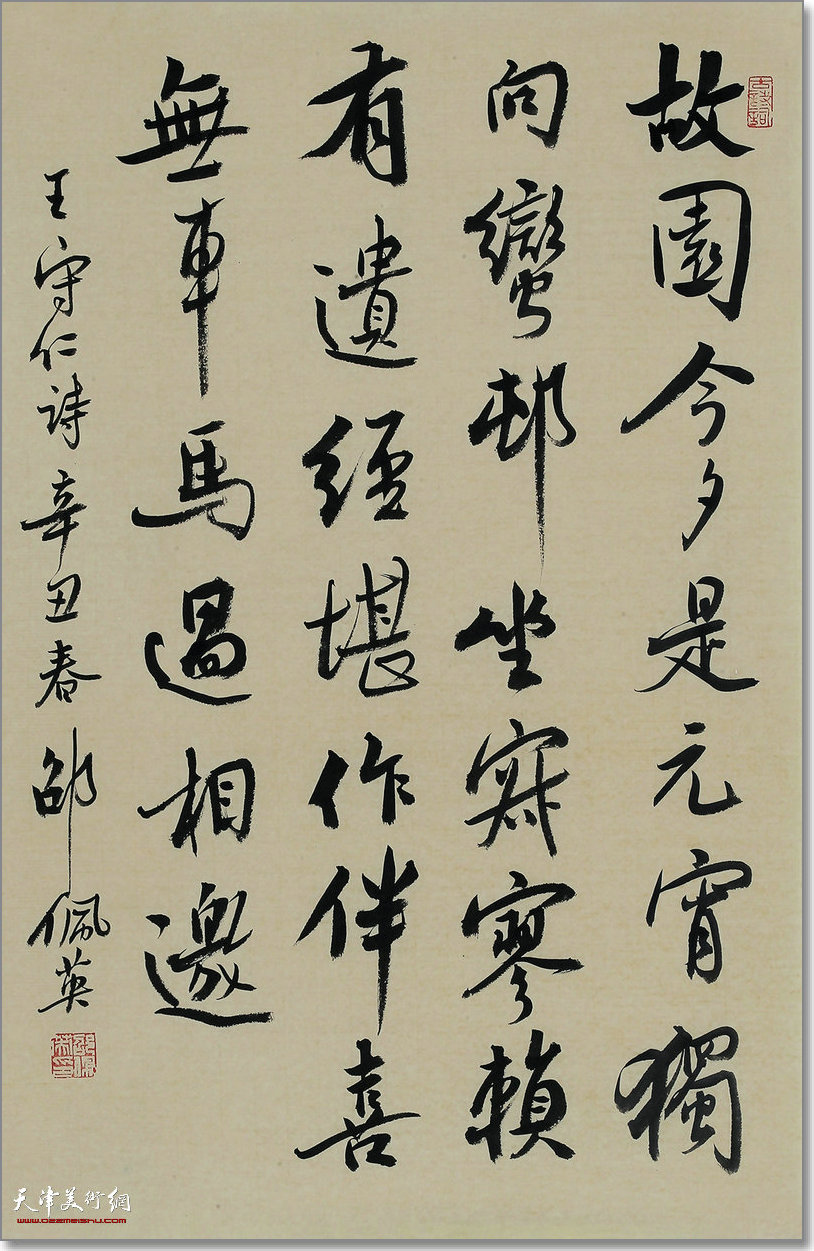 故園今夕是元宵獨
向蠻邨坐寂寥賴
有遺經堪作伴喜
無車馬過相邀
王守仁诗辛丑春邵佩英
天津美術網
www.022meishu.com